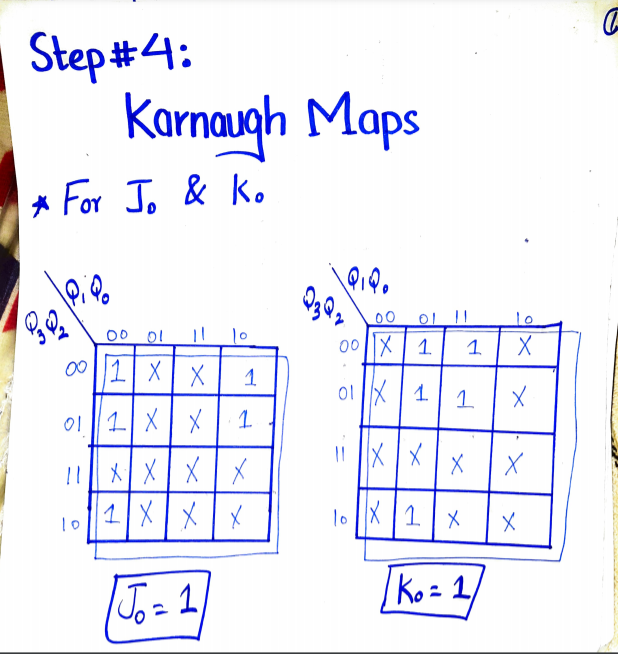 Step#4:
Karnaugh Maps
* For J₀ & K₀
Q₁Q₀
Q₃Q₂
00 01 11 10
00 1 X X 1
01 1 X X 1
11 X X X X
10 1 X X X
J₀ = 1
Q₁Q₀
Q₃Q₂
00 01 11 10
00 X 1 1 X
01 X 1 1 X
11 X X X X
10 X 1 X X
K₀ = 1